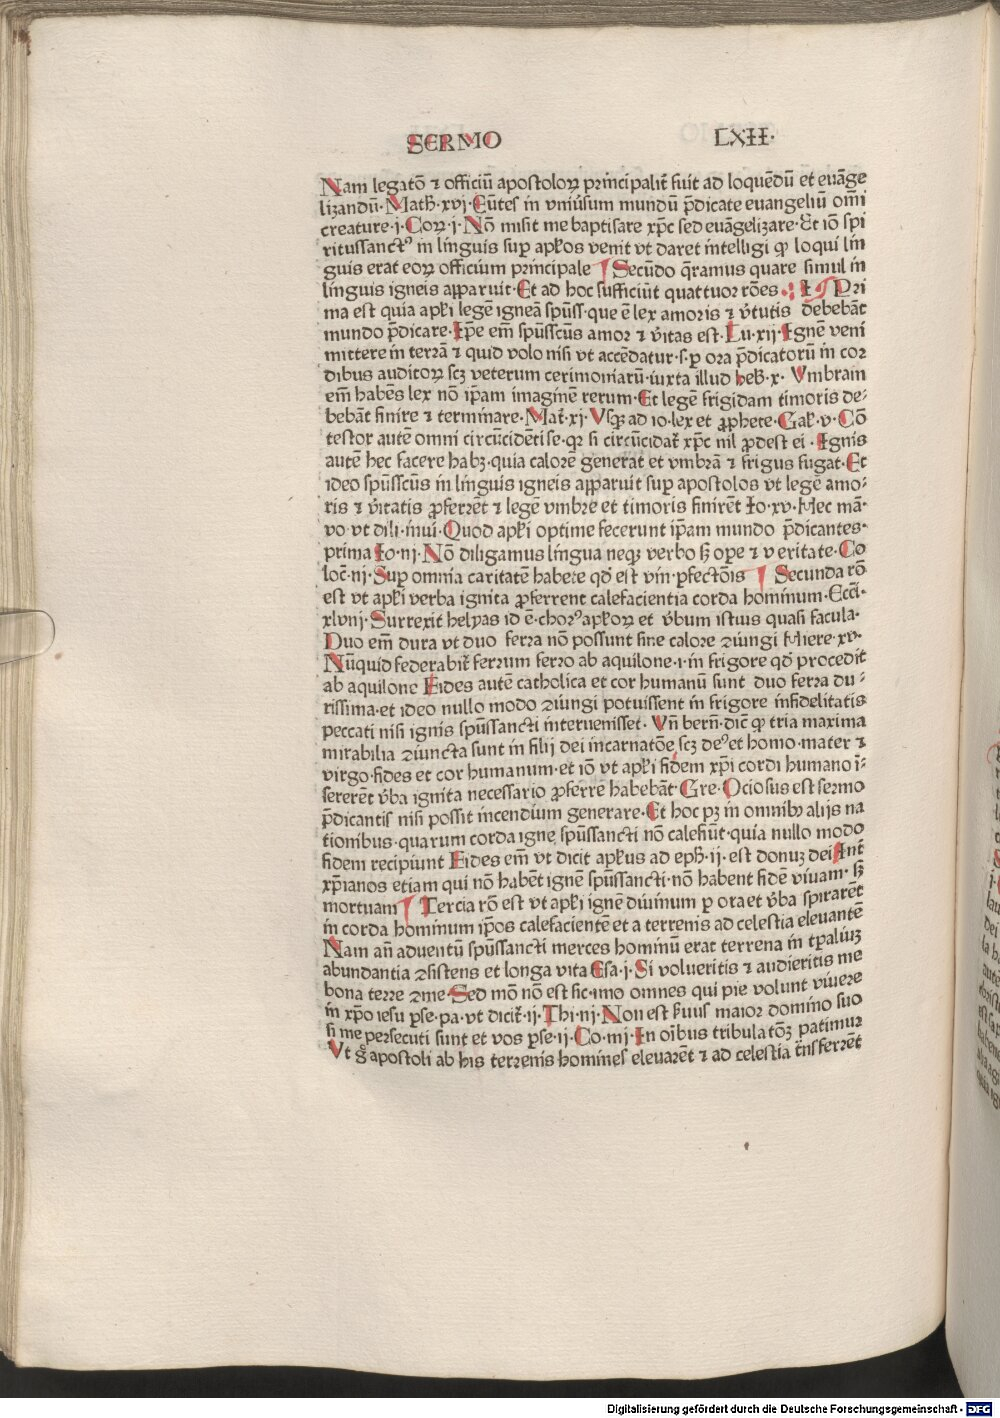 SERMO LXII·
Nam legatō ⁊ officiū apostoloꝝ principalit̄ fuit ad loquēdū et euāge
lizandū· Math̄·xvj·Eūtes in vniūsum mundū p̄dicate euangeliū om̄i
creature·j·Coꝝ·j·Nō misit me baptisare xp̄c sed euāgelizare·Et iō spi
ritussanctꝰ in linguis suꝑ apl̄os venit vt daret intelligi ꝙ loqui lin
guis erat eoꝝ officium principale ¶ Secūdo q̄ramus quare simul in
linguis igneis apparuit·Et ad hoc sufficiūt quattuor rōes ·:·I ¶ Pri
ma est quia apl̄i legē igneā spūss·que ē lex amoris ⁊ v̄tutis debebāt
mundo p̄dicare·Ip̄e em̄ spūsscūs amor ⁊ v̄itas est·Lu·xij·Ignē veni
mittere in terrā ⁊ quid volo nisi vt accēdatur·s·ꝑ ora p̄dicatorū in cor
dibus auditoꝝ scꝫ veterum cerimoniarū·iuxta illud heb̄·x·Vmbram
em̄ habēs lex nō ip̄am imaginē rerum·Et legē frigidam timoris de⸗
bebāt finire ⁊ terminare·Mat̄·xj·Vsqꝫ ad io·lex et ꝓphete·Gal̄·v·Cō
testor autē omni circūcidēti se·qꝛ si circūcidat̄ xp̄c nil ꝓdest ei·Ignis
autē hec facere habꝫ·quia calorē generat et vmbrā ⁊ frigus fugat·Et
ideo spūsscūs in linguis igneis apparuit suꝑ apostolos vt legē amo⸗
ris ⁊ v̄itatis ꝓferrēt ⁊ legē vmbre et timoris finirēt Io·xv·Hec mā⸗
vo vt dili·inui·Quod apl̄i optime fecerunt ip̄am mundo p̄dicantes·
prima Io·nj·Nō diligamus lingua neqꝫ verbo sꝫ oꝑe ⁊ veritate·Co
loc̄·nj·Suꝑ omnia caritatē habete qd̄ est vin·ꝑfectōis ¶ Secunda rō
est vt apl̄i verba ignita ꝓferrent calefacientia corda hominum·Eccl̄·
xlvnj·Surrexit helyas id ē·chorꝰ apl̄oꝝ et v̄bum istius quasi facula·
Duo em̄ dura vt duo ferra nō possunt sine calore ꝯiungi Hiere·xv·
Nūquid federabit̄ ferrum ferro ab aquilone·i·in frigore qd̄ procedit
ab aquilone Fides autē catholica et cor humanū sunt duo ferra du⸗
rissima·et ideo nullo modo ꝯiungi potuissent in frigore infidelitatis
peccati nisi ignis spūssancti interuenisset·Vn̄ bern̄·dic̄ ꝙ tria maxima
mirabilia ꝯiuncta sunt in filij dei incarnatōe scꝫ deꝰ et homo·mater ⁊
virgo·fides et cor humanum·et iō vt apl̄i fidem xp̄i cordi humano i⸗
sererēt v̄ba ignita necessario ꝓferre habebāt·Gre·Ociosus est sermo
p̄dicantis nisi possit incendium generare·Et hoc pꝫ in omnibꝫ alijs na
tionibus·quarum corda igne spūssancti nō calefiūt·quia nullo modo
fidem recipiunt Fides em̄ vt dicit apl̄us ad eph̄·ij·est donuꝫ dei Int̄
xp̄ianos etiam qui nō habēt ignē spūssancti·nō habent fidē viuam·sꝫ
mortuam ¶ Tercia rō est vt apl̄i ignē diuinum ꝑ ora et v̄ba spirarēt
in corda hominum ip̄os calefacientē et a terrenis ad celestia eleuantē
Nam an̄ aduentū spūssancti merces hominū erat terrena in tꝑaliuꝫ
abundantia ꝯsistens et longa vita Esa·j·Si volueritis ⁊ audieritis me
bona terre ꝯme·Sed mō nō est sic·imo omnes qui pie volunt viuere
in xp̄o iesu ꝑse·pa·vt dicit̄·ij·Thi·nj·Non est s̄uus maior domino suo
si me persecuti sunt et vos ꝑse·ij·Co·inj·In oībus tribulatōꝫ patimur
Vt g̊ apostoli ab his terrenis homines eleuarēt ⁊ ad celestia t̄nsferrēt
Digitalisierung gefördert durch die Deutsche Forschungsgemeinschaft - DFG